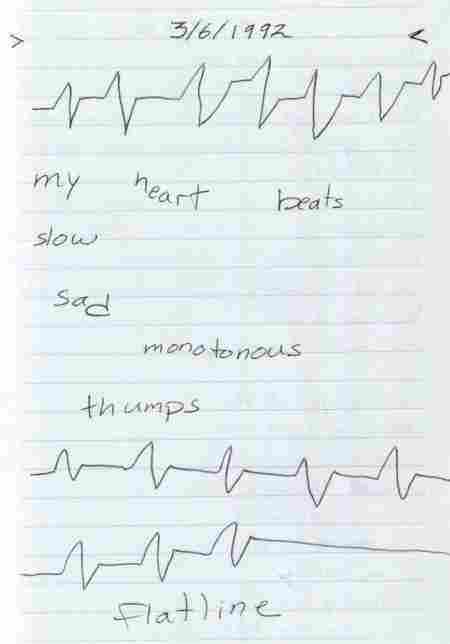 3/6/1992
my heart beats
slow
sad
monotonous
thumps
flatline